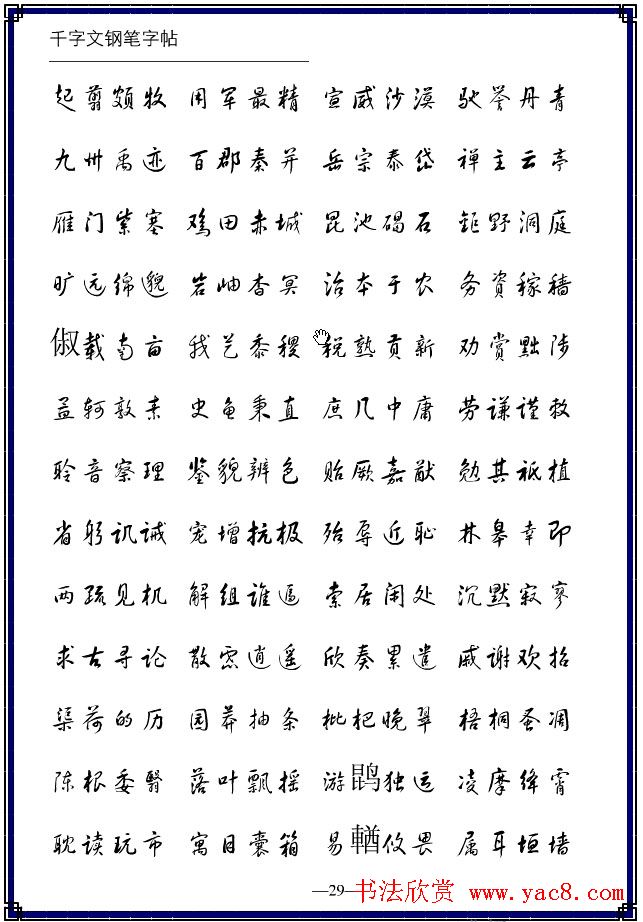 千字文钢笔字帖
起翦颇牧 用军最精 宣威沙漠 驰誉丹青
九州禹迹 百郡秦并 岳宗泰岱 禅主云亭
雁门紫塞 鸡田赤城 昆池碣石 钜野洞庭
旷远绵邈 岩岫杳冥 治本于农 务资稼穑
俶载南亩 我艺黍稷 税熟贡新 劝赏黜陟
孟轲敦素 史鱼秉直 庶几中庸 劳谦谨敕
聆音察理 鉴貌辨色 贻厥嘉猷 勉其祗植
省躬讥诫 宠增抗极 殆辱近耻 林皋幸即
两疏见机 解组谁逼 索居闲处 沉默寂寥
求古寻论 散虑逍遥 欣奏累遣 戚谢欢招
渠荷的历 园莽抽条 枇杷晚翠 梧桐蚤凋
陈根委翳 落叶飘摇 游鹍独运 凌摩绛霄
耽读玩市 寓目囊箱 易輶攸畏 属耳垣墙
—29— 书法欣赏 www.yac8.com